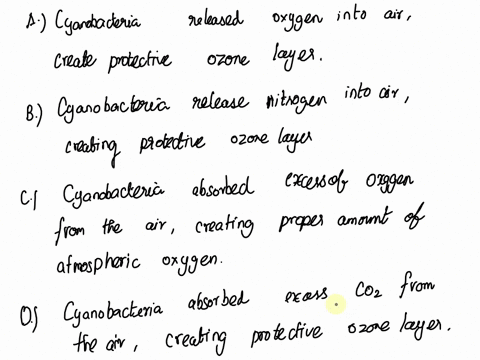 A.) Cyanobacteria released oxygen into air,
create protective ozone layer.
B.) Cyanobacteria release nitrogen into air,
creating protective ozone layer
C.) Cyanobacteria absorbed excess of oxygen
from the air, creating proper amount of
atmospheric oxygen.
D.) Cyanobacteria absorbed excess CO2 from
the air, creating protective ozone layer.